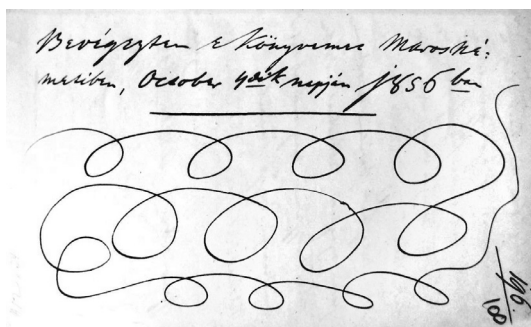 Bevégeztem e könyvemre Marosné-
metiben, October 9dik napján 1856ban